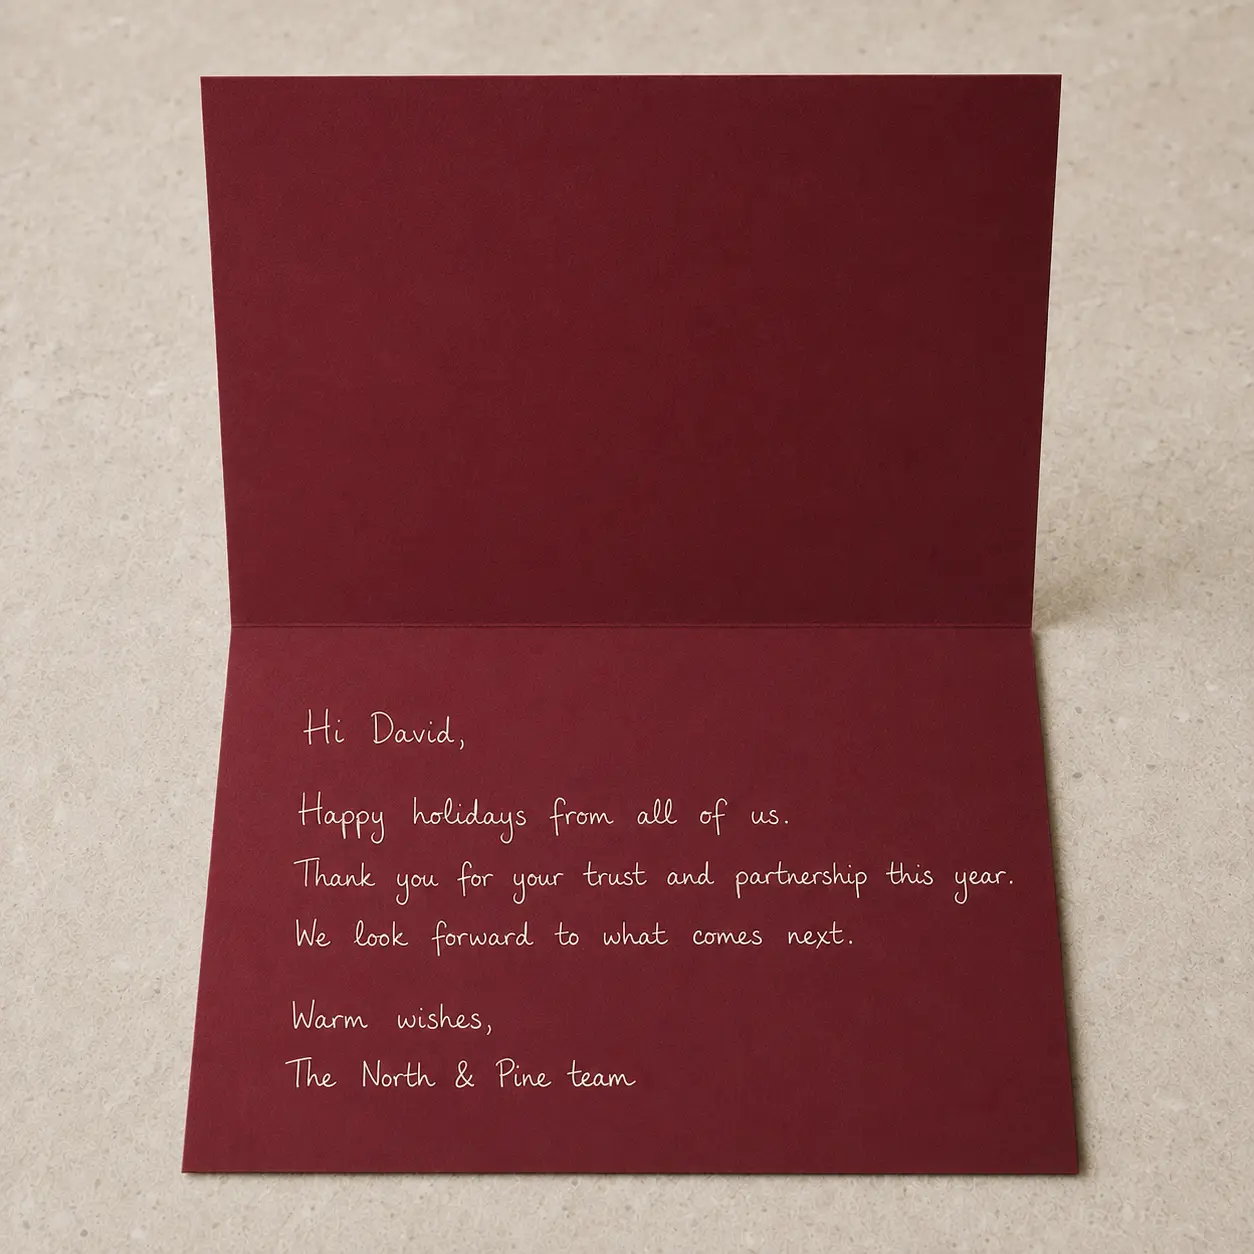 Hi David,
Happy holidays from all of us.
Thank you for your trust and partnership this year.
We look forward to what comes next.
Warm wishes,
The North & Pine team